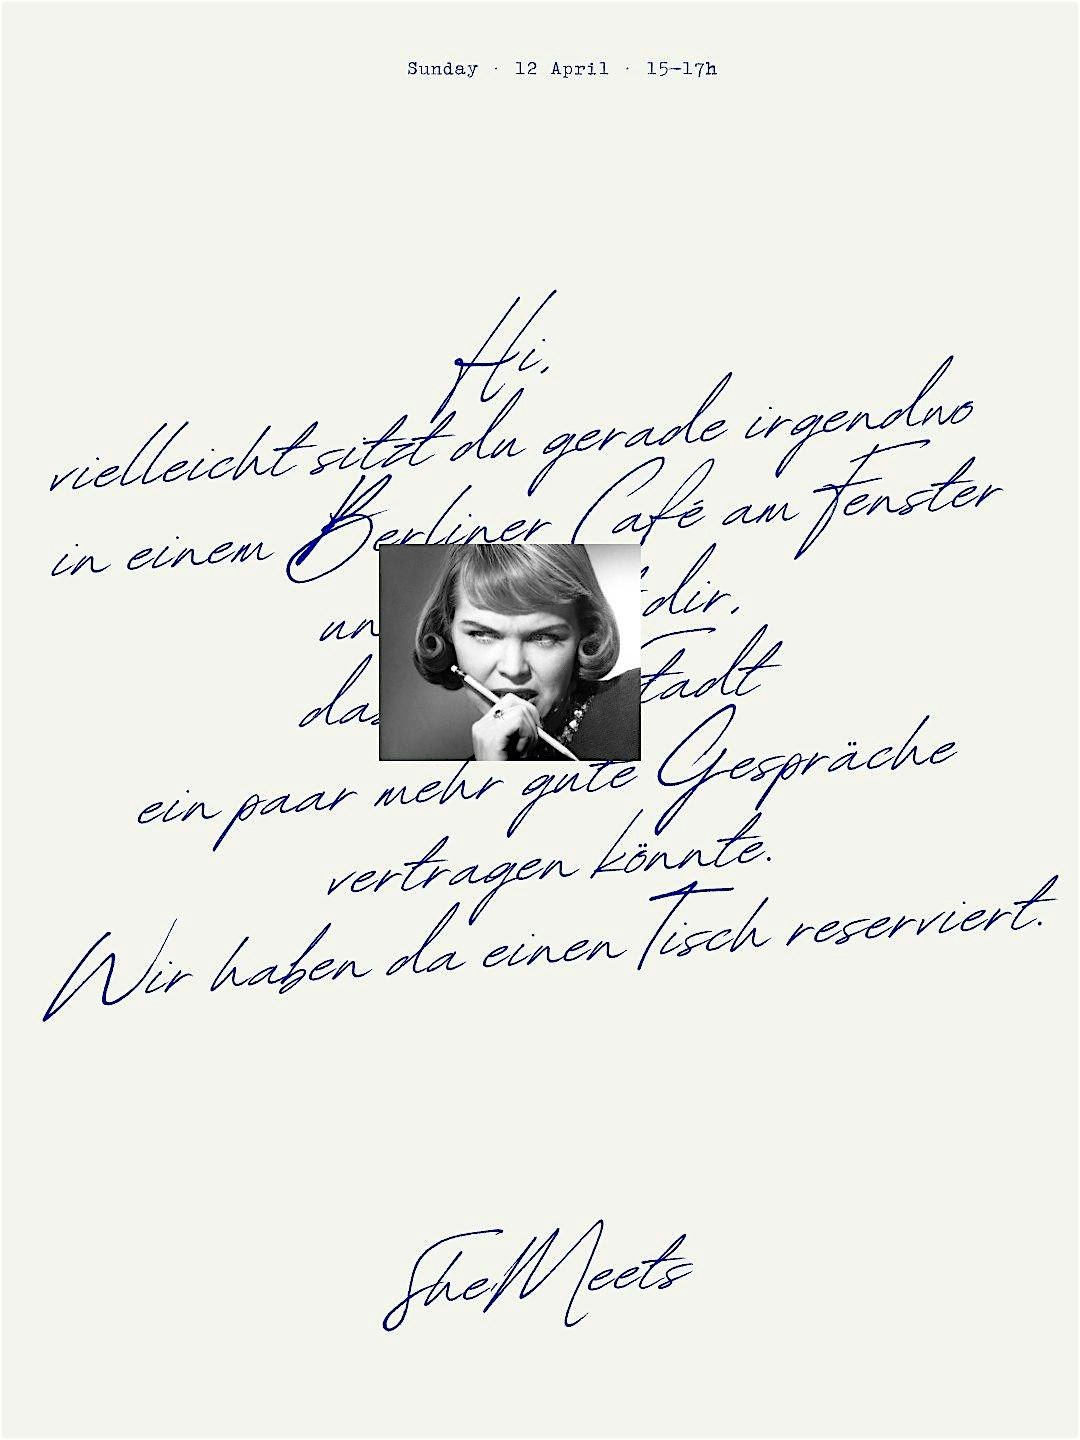 Sunday · 12 April · 15–17h
Hi,
vielleicht sitzt du gerade irgendwo
in einem Berliner Café am Fenster
dir,
ein paar mehr gute Gespräche
vertragen könnte.
Wir haben da einen Tisch reserviert.
SheMeets